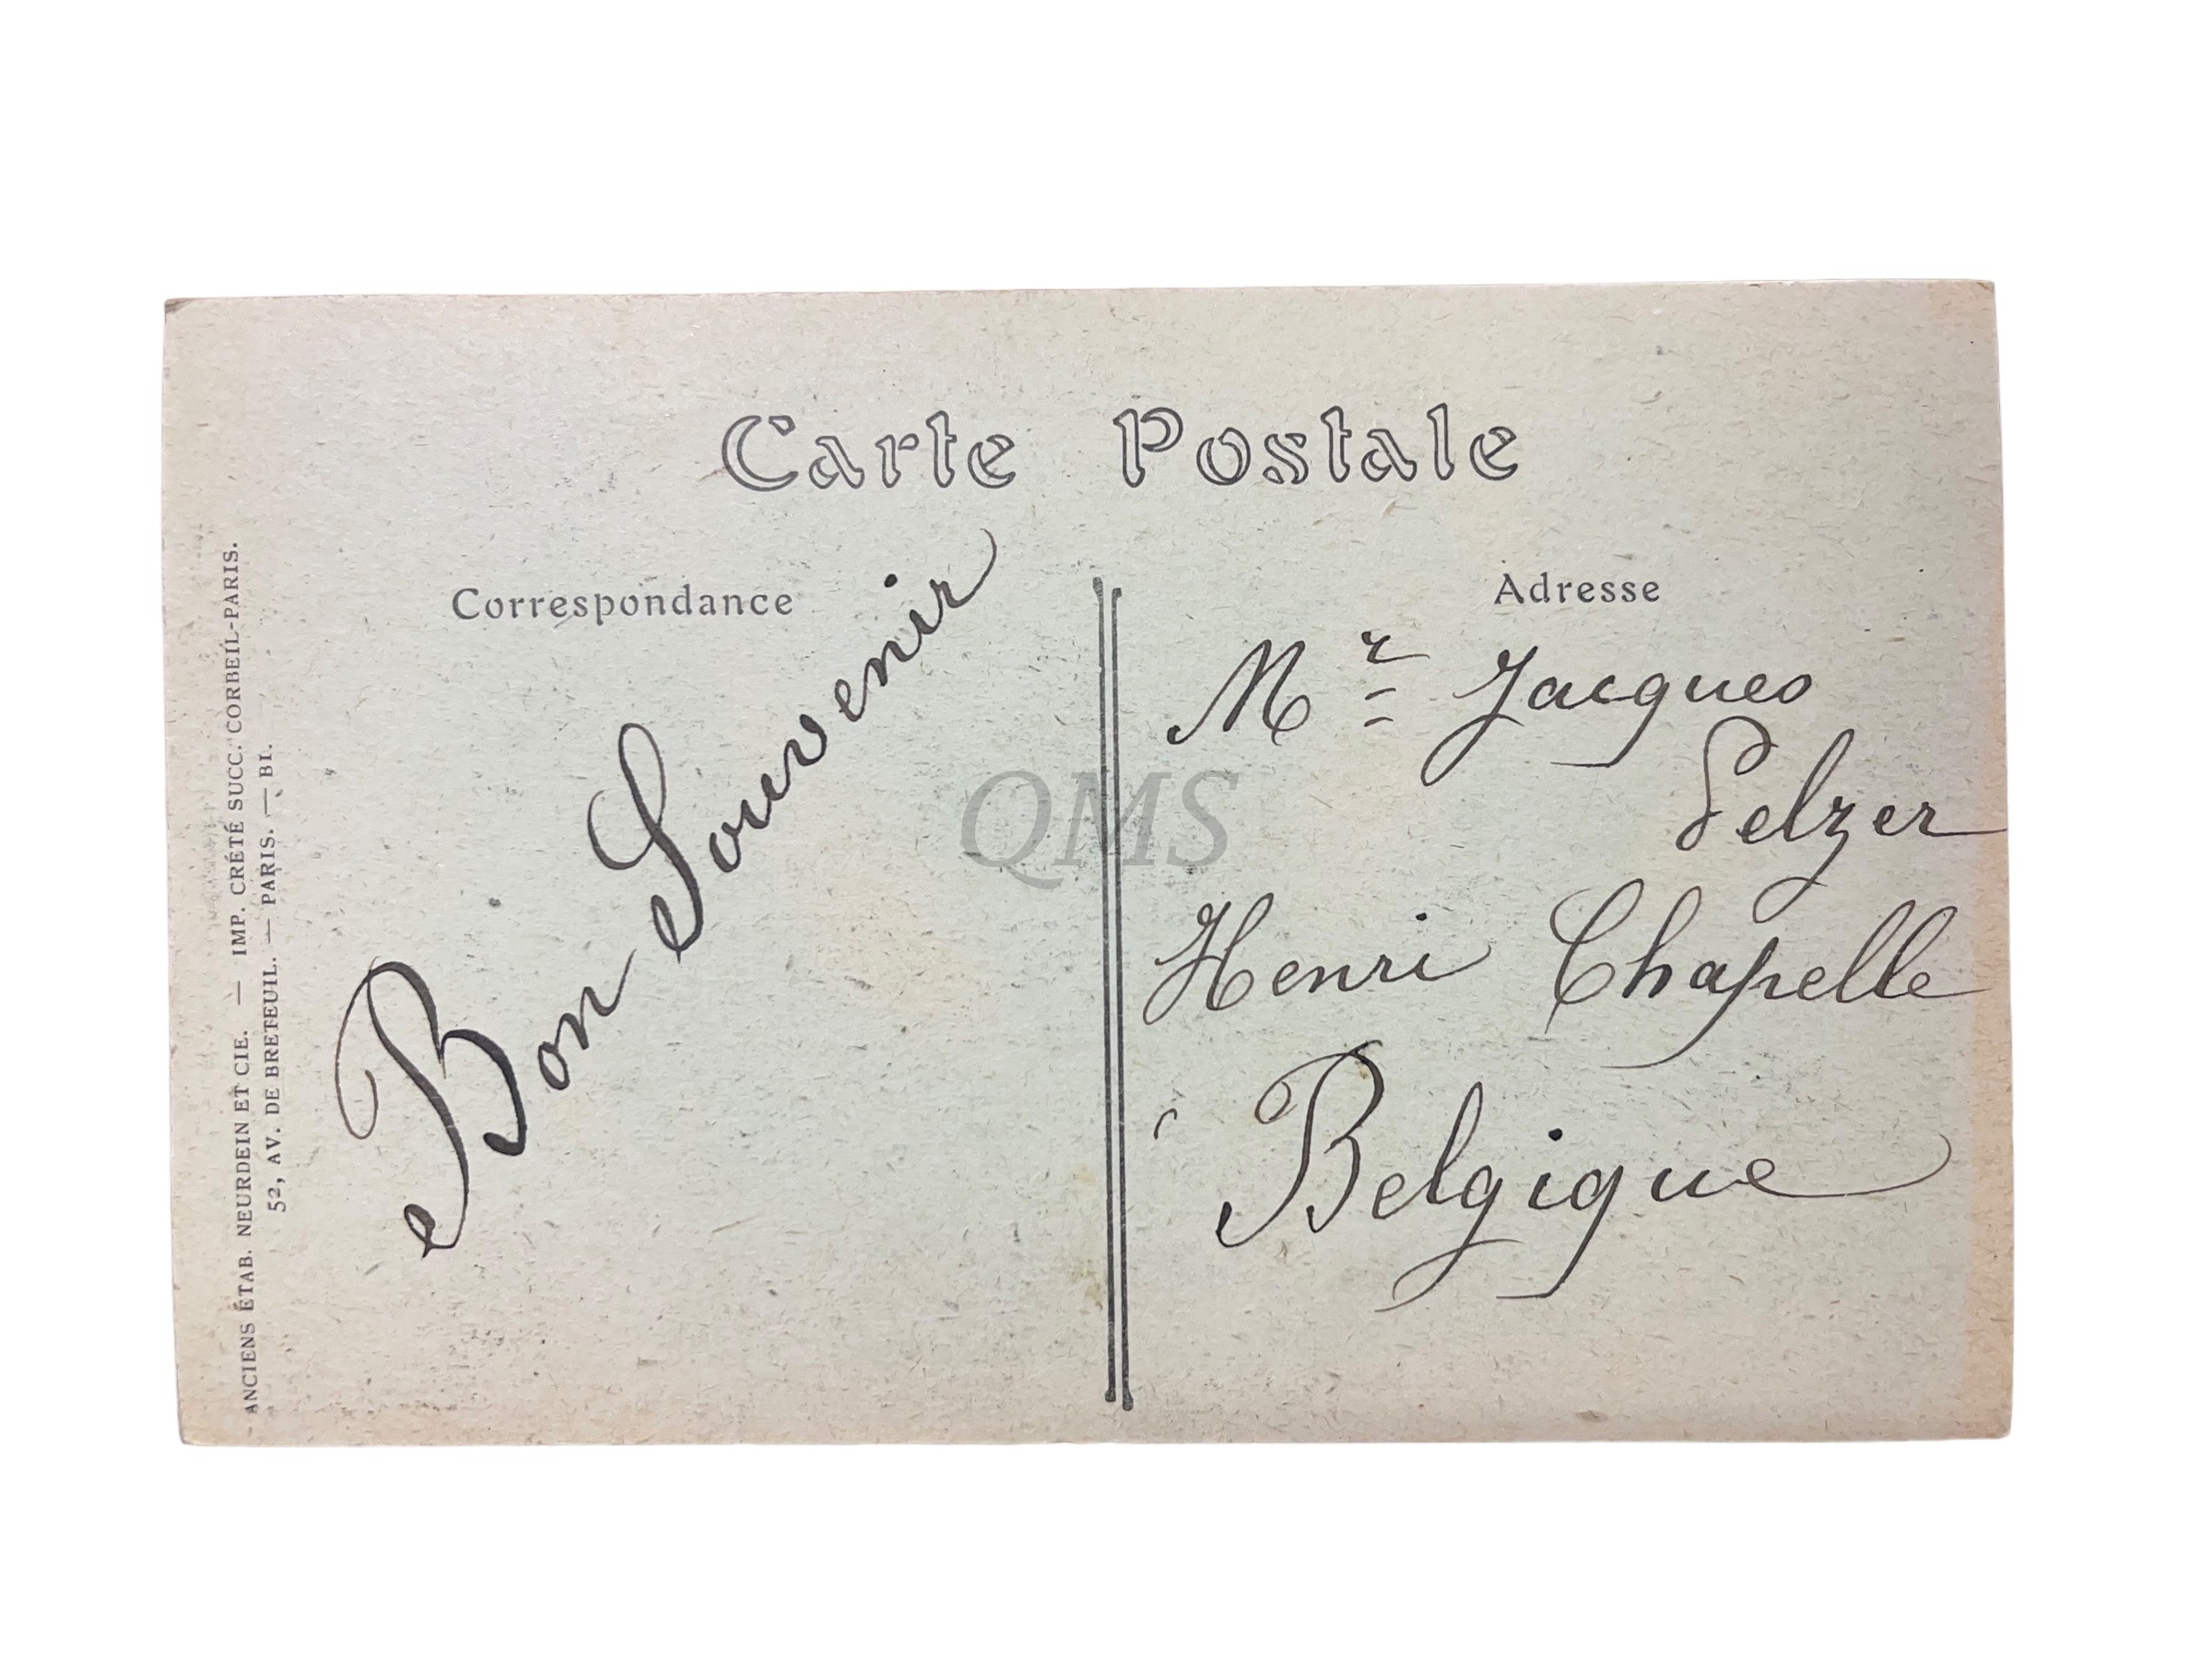 Carte Postale
Correspondance
Bon Souvenir
Adresse
Mr Jacques
Pelzer
Henri Chapelle
Belgique
ANCIENS ÉTAB. NEURDEIN ET CIE. — IMP. CRÉTÉ SUCC. CORBEIL-PARIS.
52, AV. DE BRETEUIL. — PARIS. — BI.
QMS